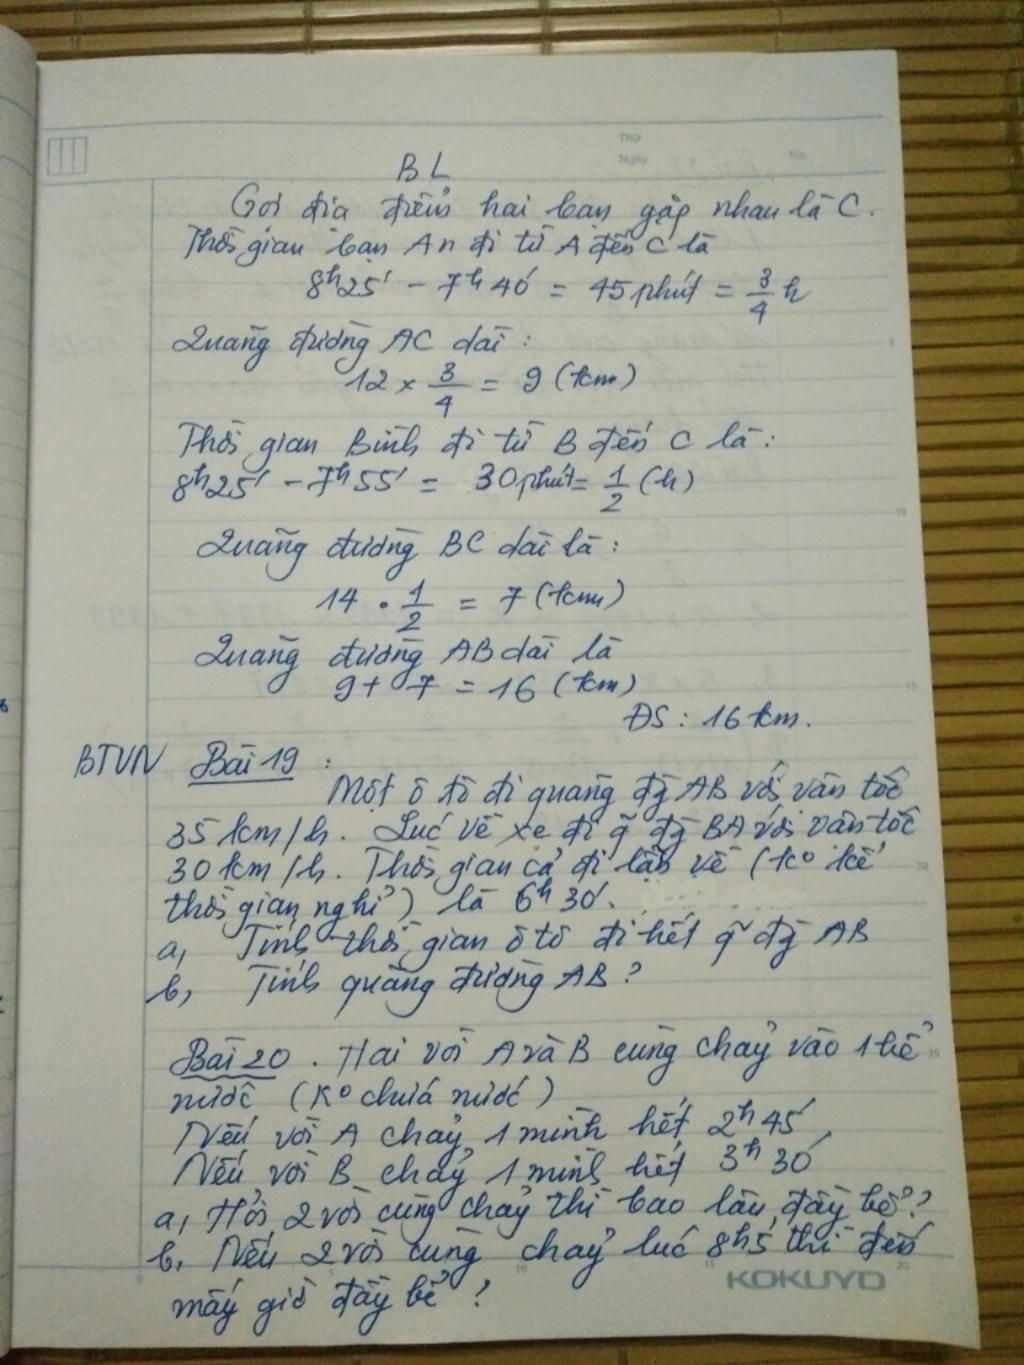 Thứ
Ngày
No.
BL
Gọi địa điểm hai bạn gặp nhau là C.
Thời gian bạn An đi từ A đến C là
8h25' - 7h40' = 45 phút = 3/4 h
Quãng đường AC dài :
12 × 3/4 = 9 (km)
Thời gian Bình đi từ B đến C là :
8h25' - 7h55' = 30 phút = 1/2 (h)
Quãng đường BC dài là :
14 . 1/2 = 7 (km)
Quãng đường AB dài là
9 + 7 = 16 (km)
ĐS : 16 km.
BTVN Bài 19 :
Một ô tô đi quãng đg AB với vân tốc
35 km/h. Lúc về xe đi q̃ đg BA với vân tốc
30 km/h. Thời gian cả đi lẫn về (ko kể
thời gian nghỉ) là 6h30'.
a, Tính thời gian ô tô đi hết q̃ đg AB
b, Tính quãng đường AB ?
Bài 20 . Hai vòi A và B cùng chảy vào 1 bể
nước (ko chứa nước)
Nếu vòi A chảy 1 mình hết 2h45'
Nếu vòi B chảy 1 mình hết 3h30'
a, Hỏi 2 vòi cùng chảy thì bao lâu đầy bể ?
b, Nếu 2 vòi cùng chảy lúc 8h5' thì đến
mấy giờ đầy bể ?
KOKUYO